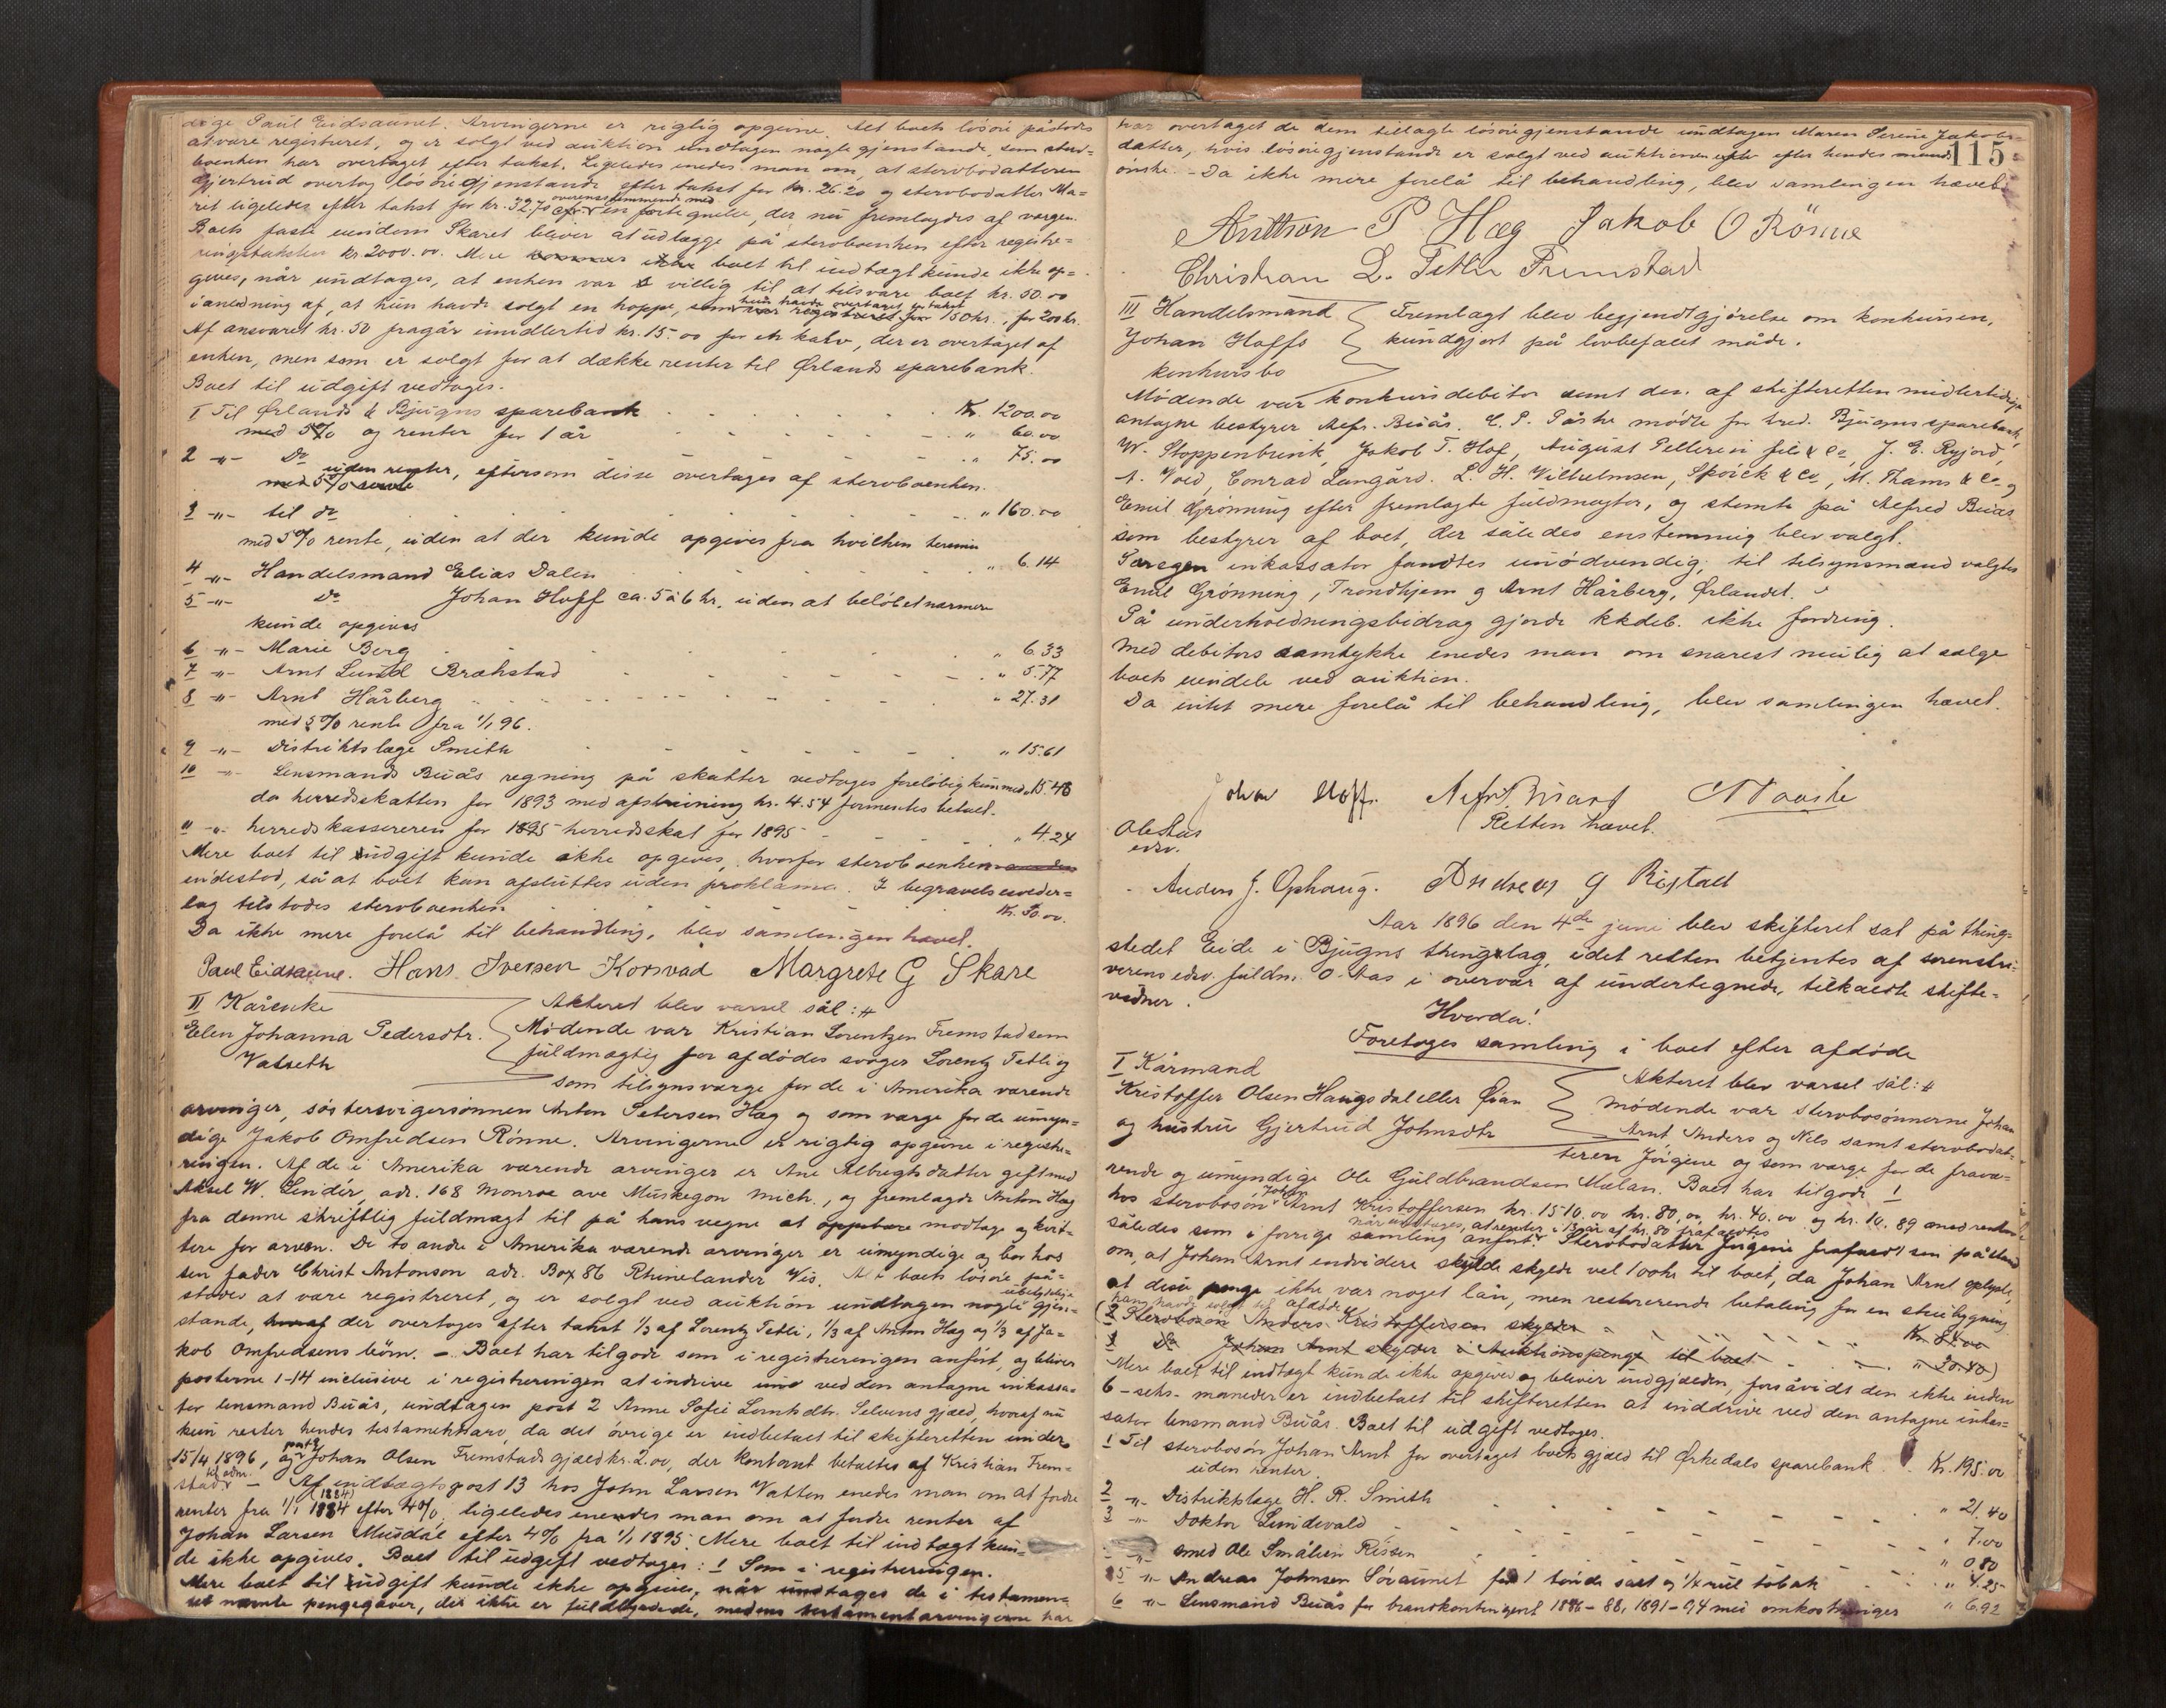 dige Paul Eidsaunet. Arvingerne er rigtig opgivne. Alt boets lösöre påstodes
at være registreret, og er solgt ved auktion undtagen nogle gjenstande, som sterv-
boenken har overtaget efter takst. Ligeledes enedes man om, at stervbodatteren
Gjertrud overtog lösöregjenstande efter takst for kr. 26.20 og stervbodatter Ma-
ret ligeledes efter takst for kr. 32.70 overensstemmende med en fortegnelse, der nu fremlagdes af værgen.
Boets faste eiendom Skaret bliver at udlægge på stervboenken efter registre-
ringstaksten kr 2000.00. Mere boet til indtægt kunde ikke op-
gives, når undtages, at enken var villig til at tilsvare boet kr. 50.00
i anledning af, at hun havde solgt en hoppe, som hun havde overtaget en takst var registreret for 150 kr., for 200 kr.
Af ansvaret kr. 50 fragår imidlertid kr. 15.00 for en kalv, der er overtaget af
enken, men som er solgt for at dække renter til Ørlands sparebank.
Boet til udgift vedtoges.
1 Til Ørlands & Bjugns sparebank Kr. 1200.00
med 5% og renter for 1 år " 60.00
2 -"- Do " 75.00
med 5% rente uden renter, eftersom disse overtages af stervboenken.
3 -"- til do " 160.00
med 5% rente, uden at der kunde opgives fra hvilken termin
4 -"- Handelsmand Elias Dalen " 6.14
5 -"- Do Johan Hoff ca. 5 à 6 kr, uden at belöbet nærmere
kunde opgives
6 -"- Marie Berg " 6.33
7 -"- Arnt Lund Brækstad " 5.77
8 -"- Arnt Hårberg " 27.31
med 5% rente fra 1/1 96.
9 -"- Distriktslæge Smith " 15.61
10 -"- Lensmand Buås regning på skatter vedtages foreløbig kun med " 15.48
da herredsskatten for 1893 med afskrivning kr. 4.54 formentes betalt.
11 -"- herredskassereren for 1895 herredsskat for 1895 " 4.24
Mere boet til udgift kunde ikke opgives, hvorfor stervboenken
indestod, så at boet kan afsluttes uden proklama. I begravelsesveder-
lag tilstodes stervboenken Kr. 50.00.
Da ikke mere forelå til behandling, blev samlingen hævet.
Paul Eidsaune. Hans Iversen Korsvad Margrete G Skare
II Kårenke
Elen Johanna Pedersdtr.
Valseth
Akteret blev varsel sål: #
Mödende var Kristian Lorentzen Fremstad som
fuldmægtig for afdödes svoger Lorentz Tetli og
som tilsynsværge for de i Amerika værende
arvinger, söstersvigersönnen Anton Petersen Hæg og som værge for de umyn-
dige Jakob Omfredsen Rönne. Arvingerne er rigtig opgivne i registre-
ringen. Af de i Amerika værende arvinger er Ane Albrigtsdatter gift med
Aksel W. Lindér, adr. 168 Monroe ave Muskegon Mich., og fremlagde Anton Hæg
fra denne skriftlig fuldmagt til på hans vegne at oppebære modtage og kvit-
tere for arven. De to andre i Amerika værende arvinger er umyndige og bor hos
sin fader Christ Antonson adr. Box 86 Rhinelander Wis. Alt boets lösöre på-
stodes at være registreret, og er solgt ved auktion undtagen nogle ubetydelige gjen-
stande, hvoraf der overtoges efter takst 1/3 af Lorentz Tetli, 1/3 af Anton Hæg og 1/3 af Ja-
kob Omfredsens börn. – Boet har tilgode som i registreringen anfört, og bliver
posterne 1-14 inclusive i registreringen at indrive ved den antagne inkassa-
tor lensmand Buås, undtagen post 2 Anne Sofie Lornhdtr. Selvens gjæld, hvoraf nu
kun rester hendes testamentarv, da det övrige er indbetalt til skifteretten under
15/4 1896, og post 9 Johan Olsen Fremstads gjæld kr. 2.00, der kontant betaltes af Kristian Frem-
stad til adm. – Af indtægtspost 13 hos John Larsen Vatten enedes man om at fordre
renter fra 1/1 1884 (1884) efter 4%, ligeledes enedes man om at fordre renter af
Johan Larsen Musdal efter 4% fra 1/1 1895. Mere boet til indtægt kun-
de ikke opgives. Boet til udgift vedtoges: 1 Som i registreringen.
Mere boet til udgift kunde ikke opgives, når undtages de i testamen-
tet nævnte pengegaver, der ikke er fuldbyrdede, medens testamentarvingerne har
115
har overtaget de dem tillagte lösöregjenstande undtagen Maren Serine Jakobs-
datter, hvis lösöregjenstande er solgt ved auktionen efter hendes mands
önske. – Da ikke mere forelå til behandling, blev samlingen hævet.
Anthon P Hæg Jakob O Rönne
Christian L. Tetlie Fremstad
III Handelsmand
Johan Hoffs
konkursbo
Fremlagt blev bekjendtgjörelse om konkursen,
kundgjort på lovbefalet måde.
Mödende var konkursdebitor samt den af skifteretten midlertidige
antagne bestyrer Alfr. Buås. C. P. Påske mödte for kred. Bjugns sparebank,
W. Stoppenbrink, Jakob T. Hof, August Pellerin fils & Co, J. E. Ryjord,
A. Void, Conrad Langård. L. H. Wilhelmsen, Spörck & Co, M. Thams & Co og
Emil Grönning efter fremlagte fuldmagter, og stemte på Alfred Buås
som bestyrer af boet, der således enstemmig blev valgt.
Særegen inkassator fandtes unödvendig; til tilsynsmænd valgtes
Emil Grönning, Trondhjem og Arnt Hårberg, Ørlandet.
På underholdningsbidrag gjorde kkdeb. ikke fordring.
Med debitors samtykke enedes man om snarest mulig at sælge
boets eiendele ved auktion.
Da intet mere forelå til behandling, blev samlingen hævet.
Johan Hoff. Alfr. Buaas C P Paaske
Retten hævet.
Ole Aas
edsv.
Anders J. Ophaug. Andreas G Ristad
Aar 1896 den 4de juni blev skifteret sat på thing-
stedet Eide i Bjugns thinglag, idet retten betjentes af sorenskri-
verens edsv. fuldm. O. Aas i overvær af undertegnede, tilkaldte skifte-
vidner.
Hvorda!
Foretoges samling i boet efter afdöde
I Kårmand
Kristoffer Olsen Haugsdal eller Øian
og hustru Gjertrud Johnsdtr
Akteret blev varsel sål: #
mödende var stervbosönnerne Johan
Arnt, Anders og Nils samt stervbodat-
teren Jörgine og som værge for de fravæ-
rende og umyndige Ole Guldbrandsen Mælan. Boet har tilgode 1
hos stervbosön Johan Arnt Kristoffersen kr. 1510.00 kr. 80,00 kr. 40.00 og kr. 10.89 med renter
således som i forrige samling anfört når undtages, at renter i 13 år af kr. 80 frafaldtes. Stervbodatter Jörgine frafaldt sin påstand
om, at Johan Arnt endvidere skylde vel 100 kr til boet, da Johan Arnt oplyste,
at disse penge ikke var noget lån, men resterende betaling for en stuebygning
han havde solgt til afdöde
(2 Stervbosön Anders Kristoffersen skylder Kr. 84.00
3 Do Johan Arnt skylder i Auktionspenge til boet " 30.40)
Mere boet til indtægt kunde ikke opgives og bliver indgjælden, forsåvidt den ikke inden
6 – seks – maneder er indbetalt til skifteretten at inddrive ved den antagne inkas-
sator lensmand Buås. Boet til udgift vedtoges.
1 Til stervbosön Johan Arnt for overtaget boets gjæld til Ørkedals sparebank Kr. 195.00
uden renter.
2 -"- Distriktslæge H. R. Smith " 21.40
3 -"- Doktor Lindevald " 7.00
-"- smed Ole Smålien Rissen " 0.80
5 -"- Andreas Johnsen Sövaunet for 1 tönde salt og 1/4 rul tobak " 4.25
6 -"- Lensmand Buås for brandkontingent 1886-88, 1891-94 med omkostninger " 6.92